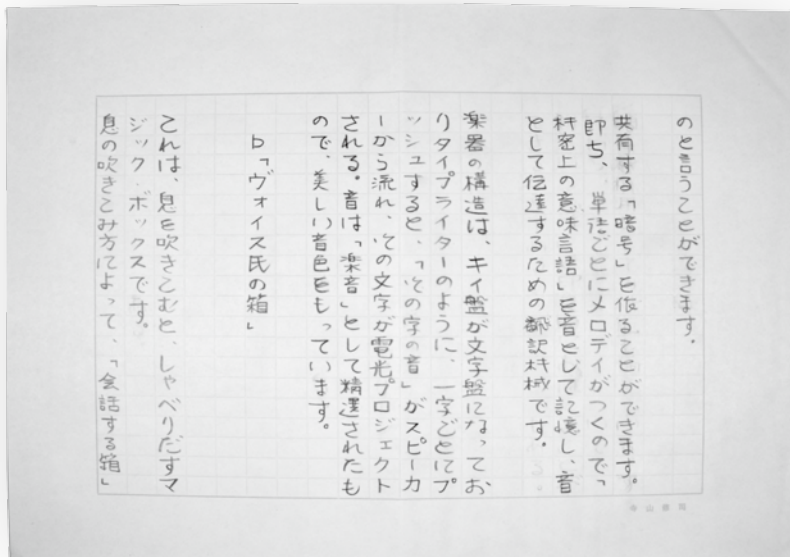 のと言うことができます。
共有する「暗号」を作ることができます。
即ち、単語ごとにメロディがつくので「
秘密上の意味言語」を音として記憶し、音
として伝達するための翻訳機械です。
楽器の構造は、キイ盤が文字盤になってお
りタイプライターのように、一字ごとにプ
ッシュすると、「その字の音」がスピーカ
ーから流れ、その文字が電光プロジェクト
される。音は「楽音」として精選されたも
ので、美しい音色をもっています。
b「ヴォイス氏の箱」
これは、息を吹きこむと、しゃべりだすマ
ジック・ボックスです。
息の吹きこみ方によって、「会話する箱」